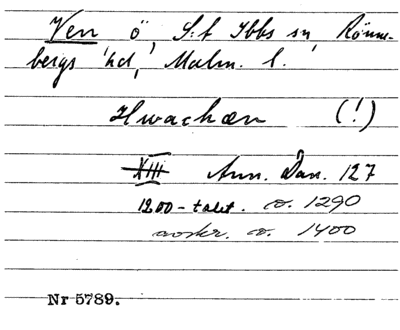 Ven ö S:t Ibbs sn, Rönne-
bergs hd, Malm. l.
Hwachæn (!)
XIII Ann. Dan. 127
1200-talet. co. 1290
avskr. co. 1400
Nr 5789.